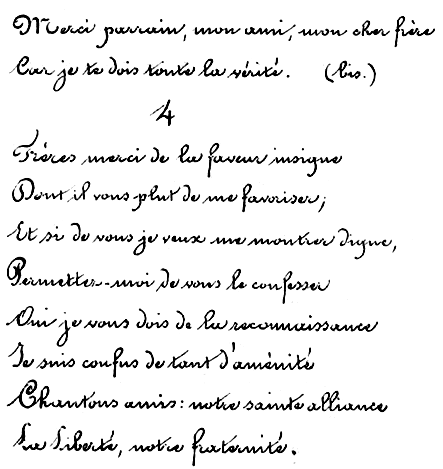 Merci parrain, mon ami, mon cher frère
Car je te dois toute la vérité. (bis.)
4
Frères merci de la faveur insigne
Dont il vous plut de me favoriser;
Et si de vous je veux me montrer digne,
Permettez-moi de vous le confesser
Oui je vous dois de la reconnaissance
Je suis confus de tant d'aménité
Chantons amis: notre sainte alliance
La Liberté, notre fraternité.